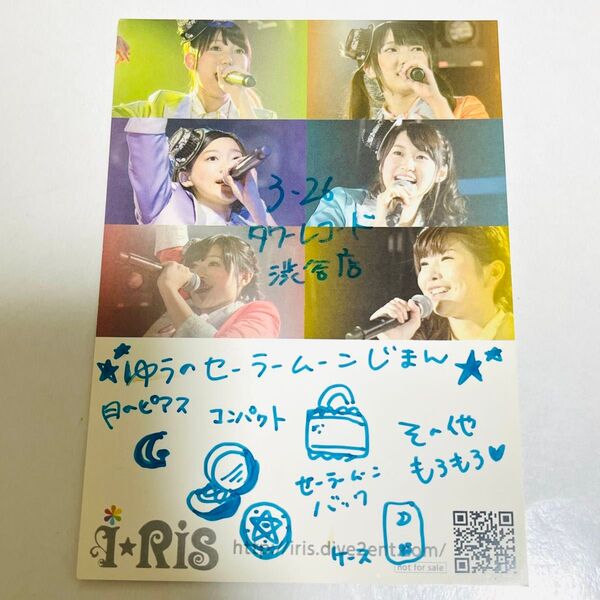 3-26
タワーレコード
渋谷店
★ゆうのセーラームーンじまん★
月のピアス
コンパクト
セーラームーン
バック
その他
もろもろ♥
ケース
D
S
i★Ris
http://iris.dive2ent.com/
not for sale